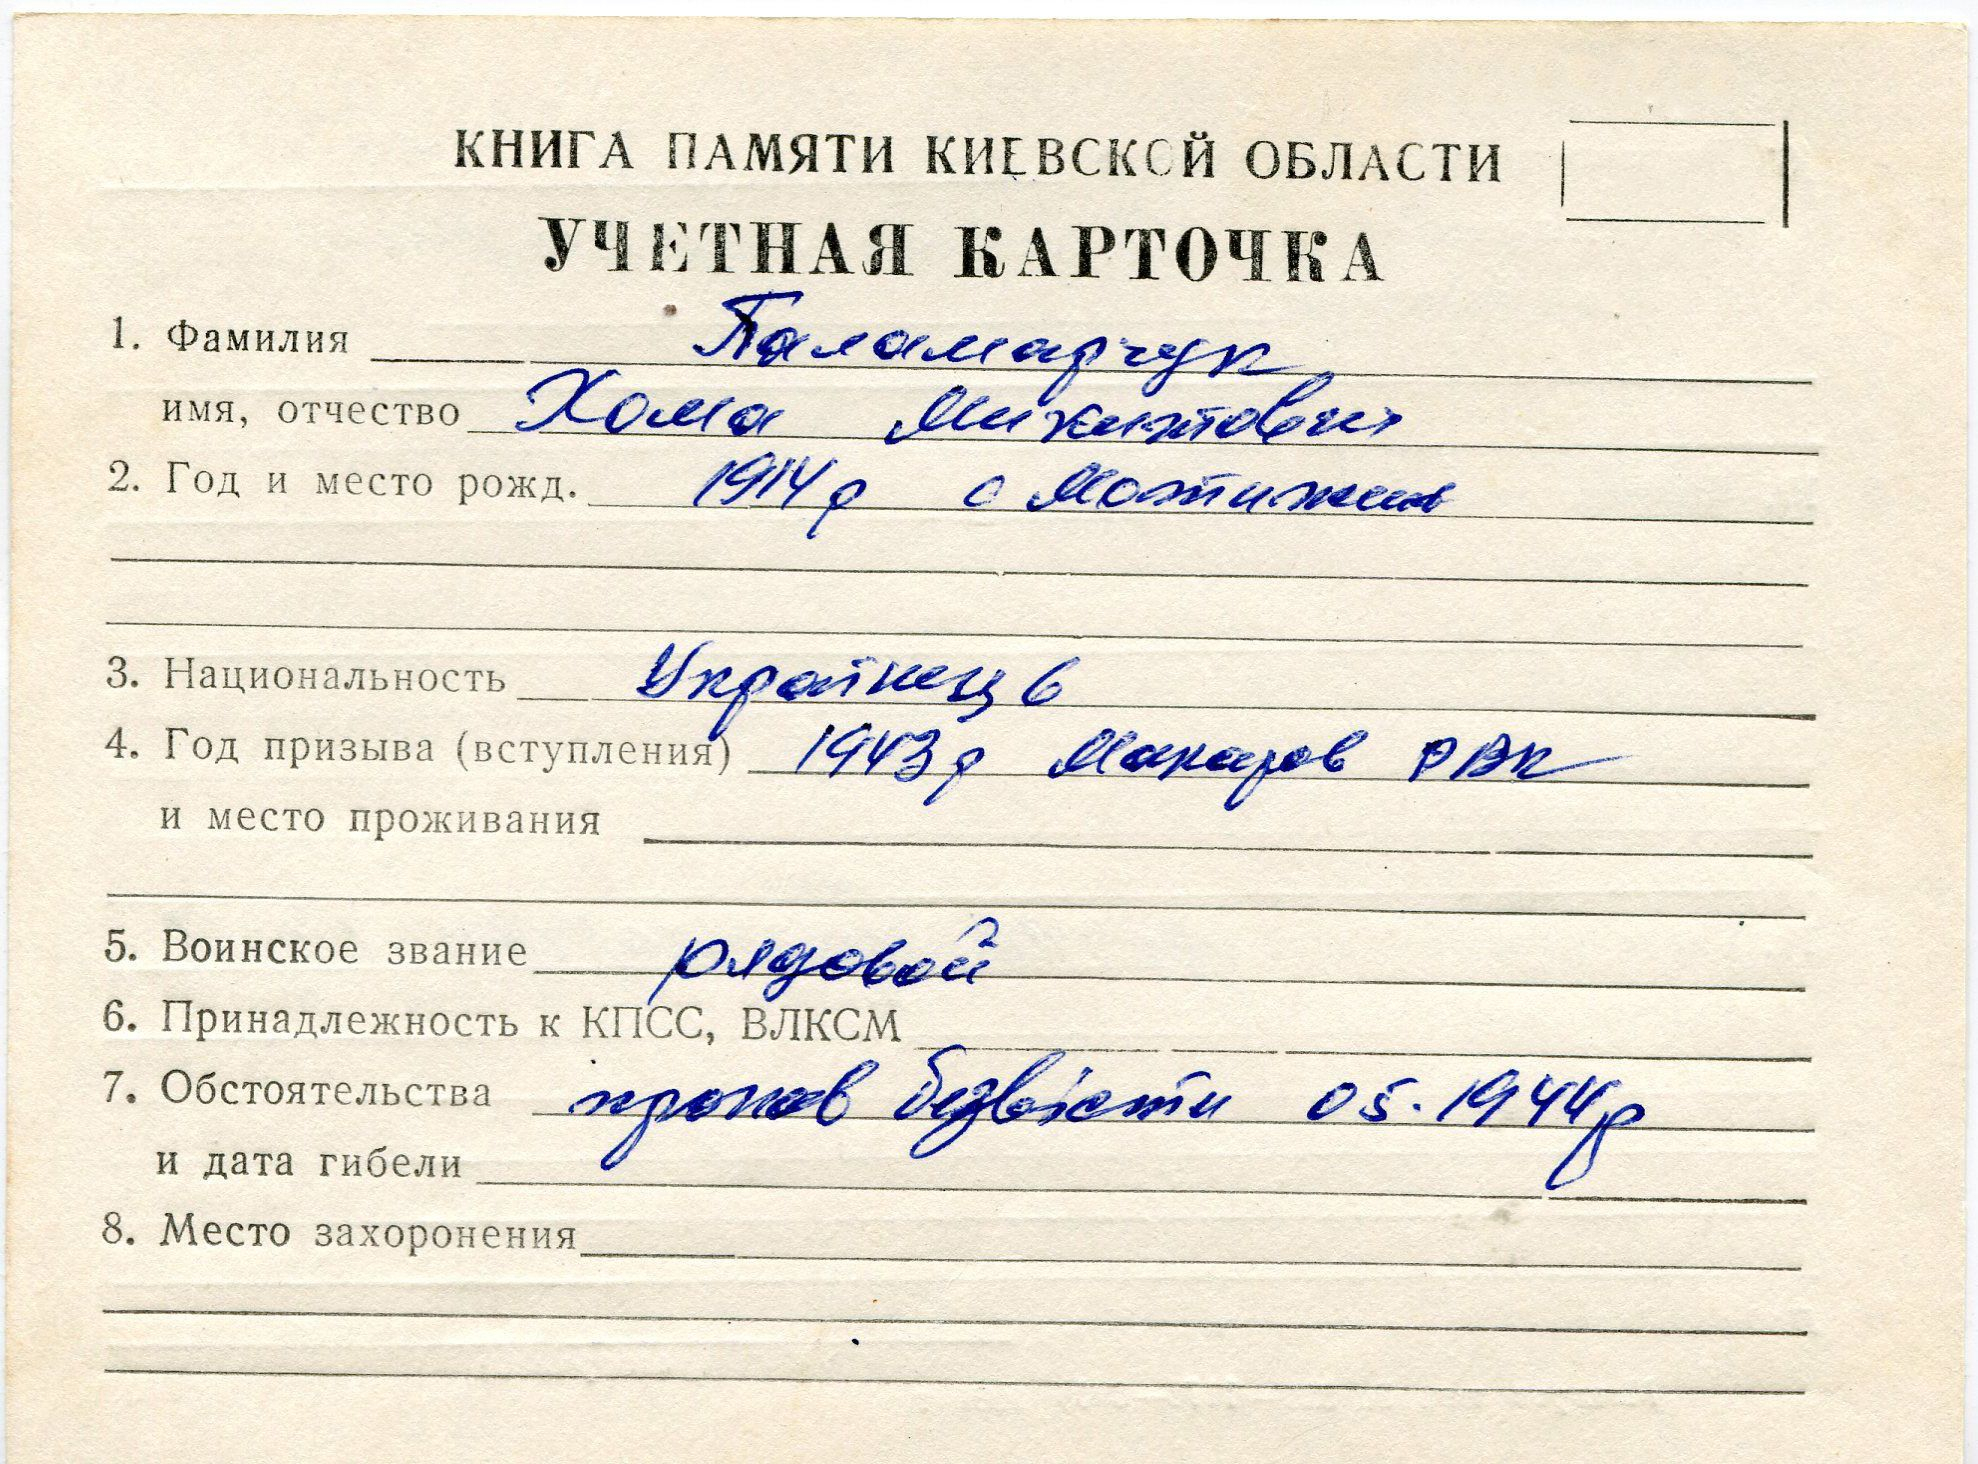 КНИГА ПАМЯТИ КИЕВСКОЙ ОБЛАСТИ
УЧЕТНАЯ КАРТОЧКА
1. Фамилия Паламарчук
имя, отчество Хома Микитович
2. Год и место рожд. 1914 р с Мотижин
3. Национальность Українець
4. Год призыва (вступления) 1943 р Макаров РВК
и место проживания
5. Воинское звание рядовой
6. Принадлежность к КПСС, ВЛКСМ
7. Обстоятельства пропав безвісти 05.1944р
и дата гибели
8. Место захоронения